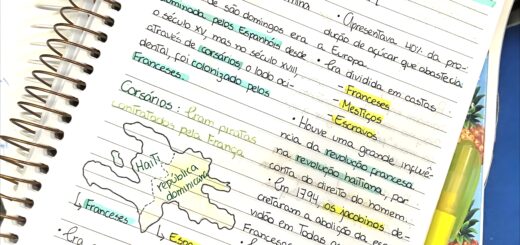 de são domingos era a
dominada pelos Espanhóis desde
o século XV, mas no século XVIII,
através de corsários o lado oci-
dental, foi colonizado pelos
Franceses.
Corsários: Eram piratas
contratados pela França
Haiti
república
dominicana
↳ Franceses
• Apresentava 40% da pro-
dução de açúcar que abastecia
a Europa.
• Era dividida em castas
- Franceses
- Mestiços
- Escravos
• Houve uma grande influên-
cia da revolução francesa
na revolução haitiana, por
conta do direito do homem.
• Em 1794, os jacobinos de-
cretaram a abolição da es
vidão em Todas a